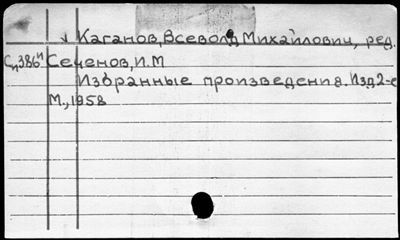 Каганов, Всеволод Михайлович, ред.
Сп386и Сеченов, И.М
Избранные произведения. Изд2-е
М., 1958